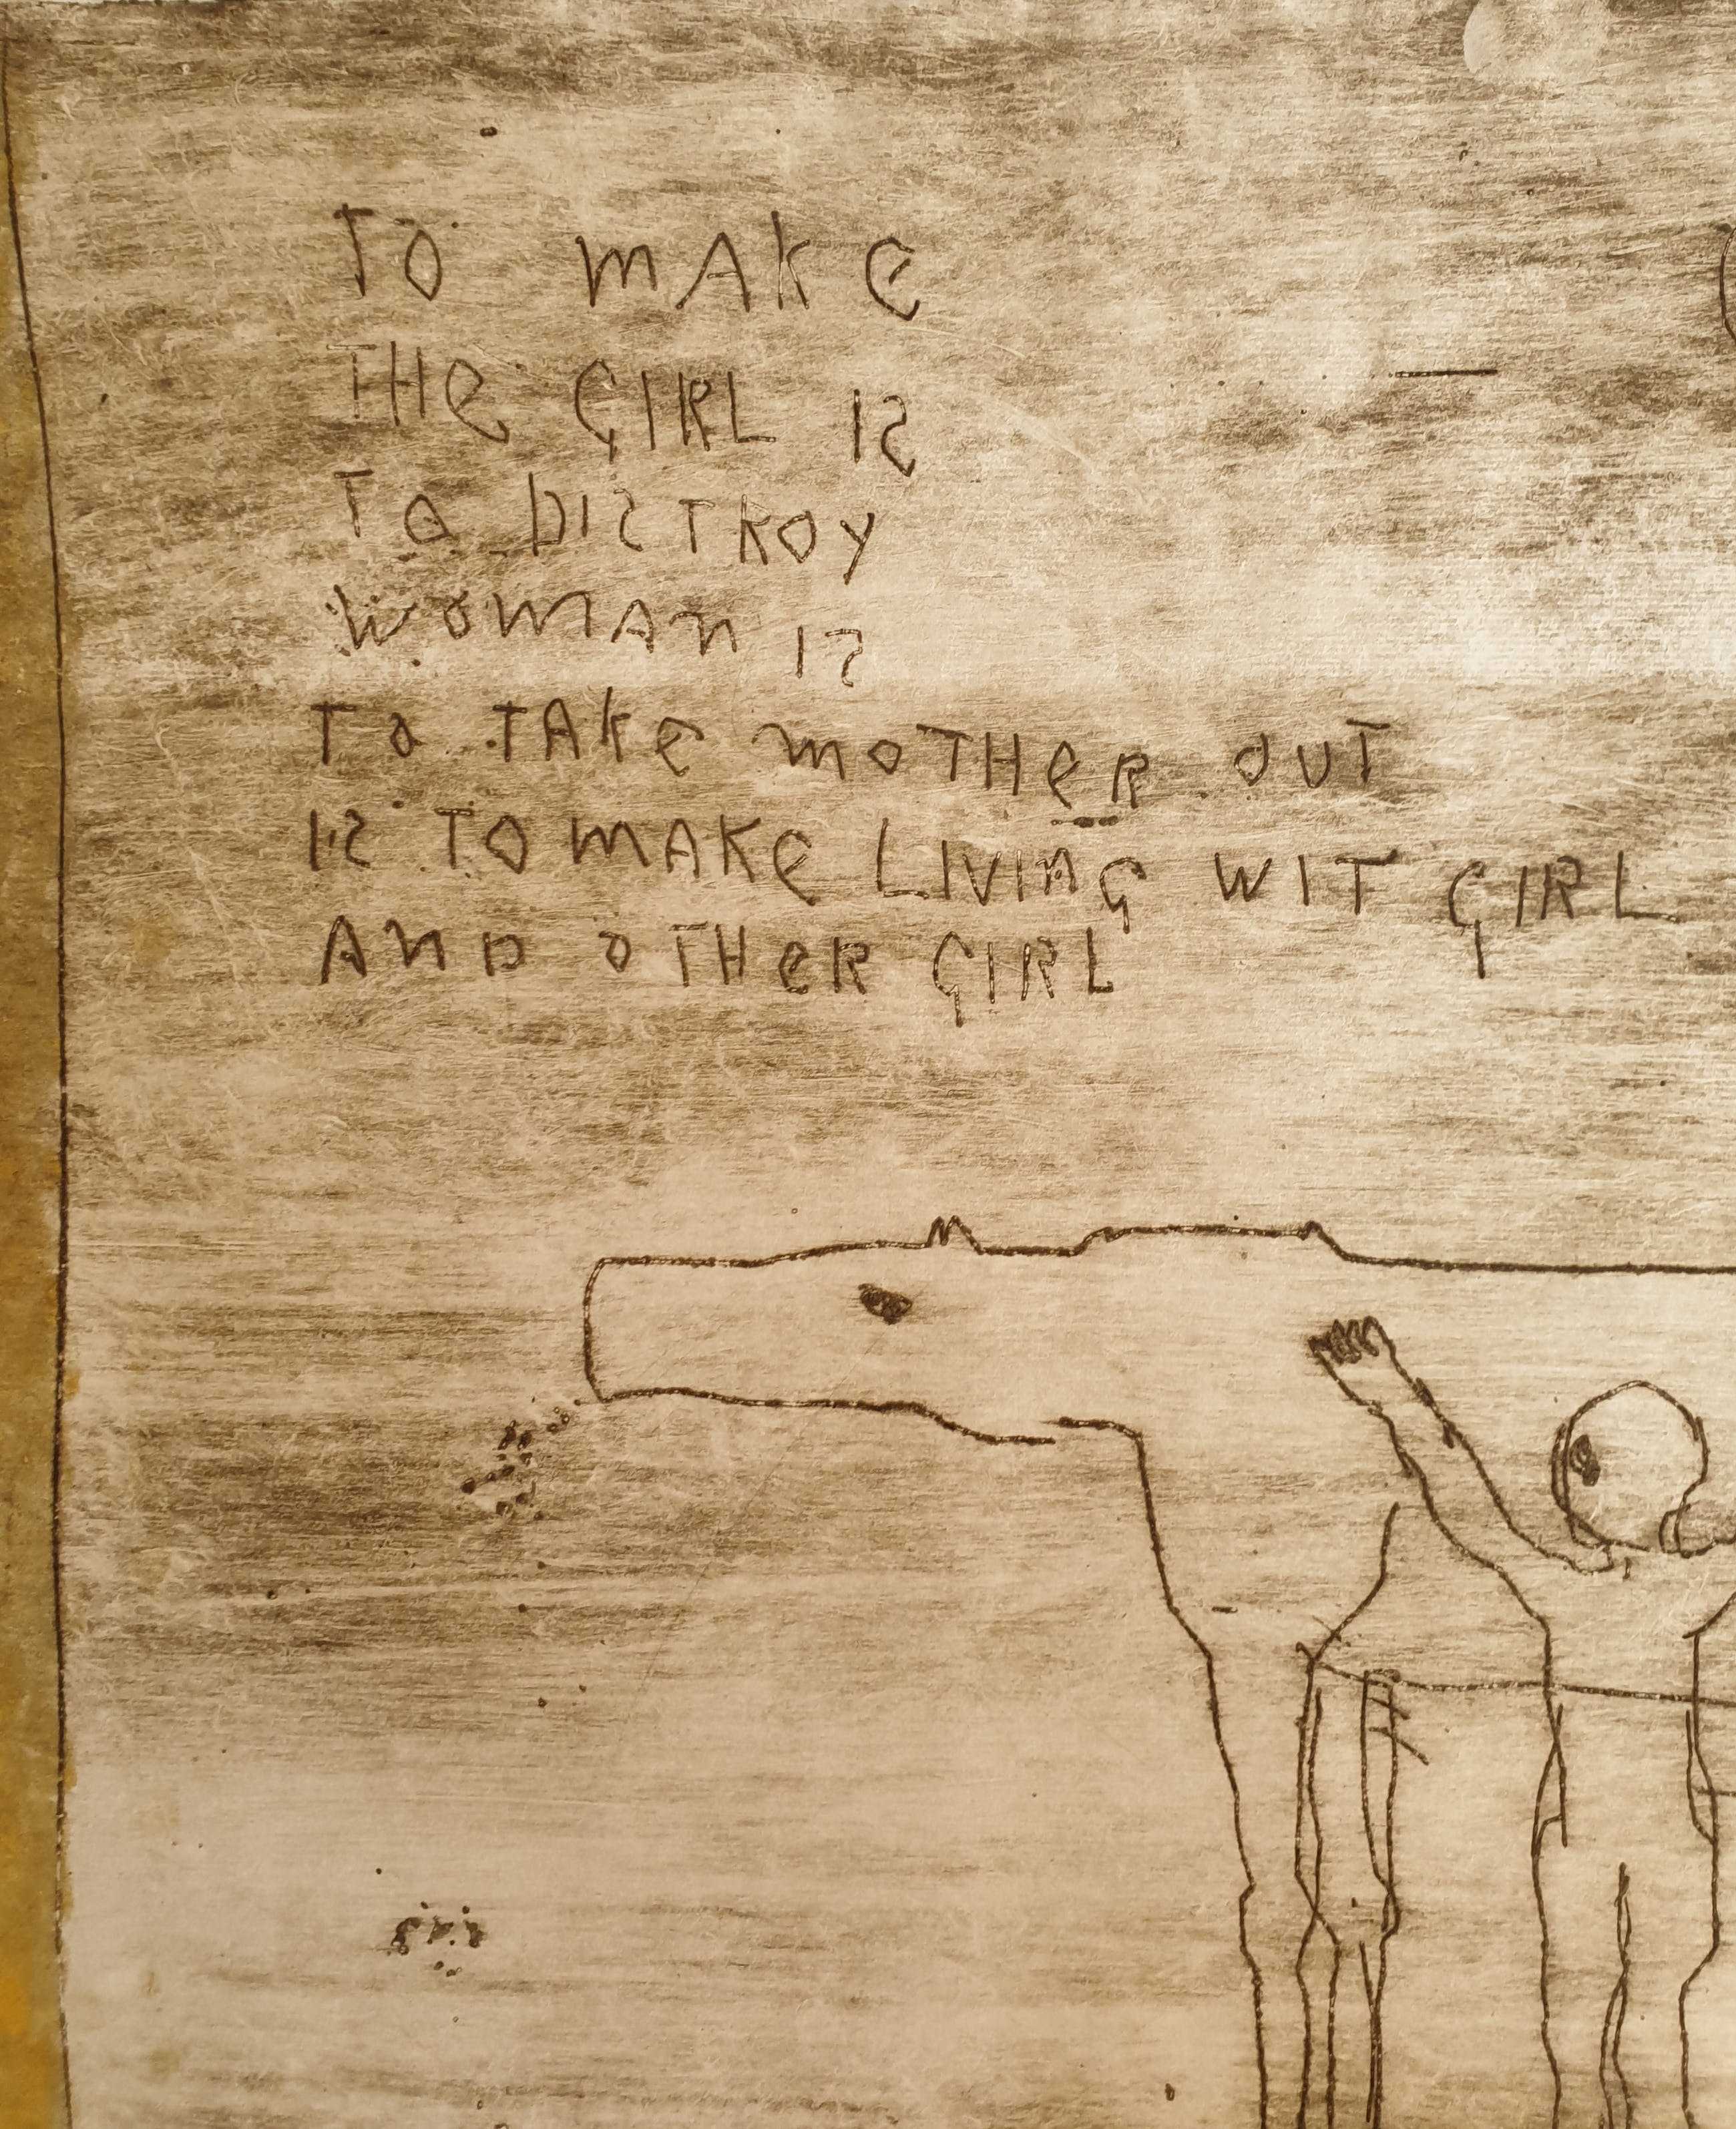 TO MAKE
THE GIRL IS
TO DISTROY
WOMAN IS
TO TAKE MOTHER OUT
IS TO MAKE LIVING WIT GIRL
AND OTHER GIRL